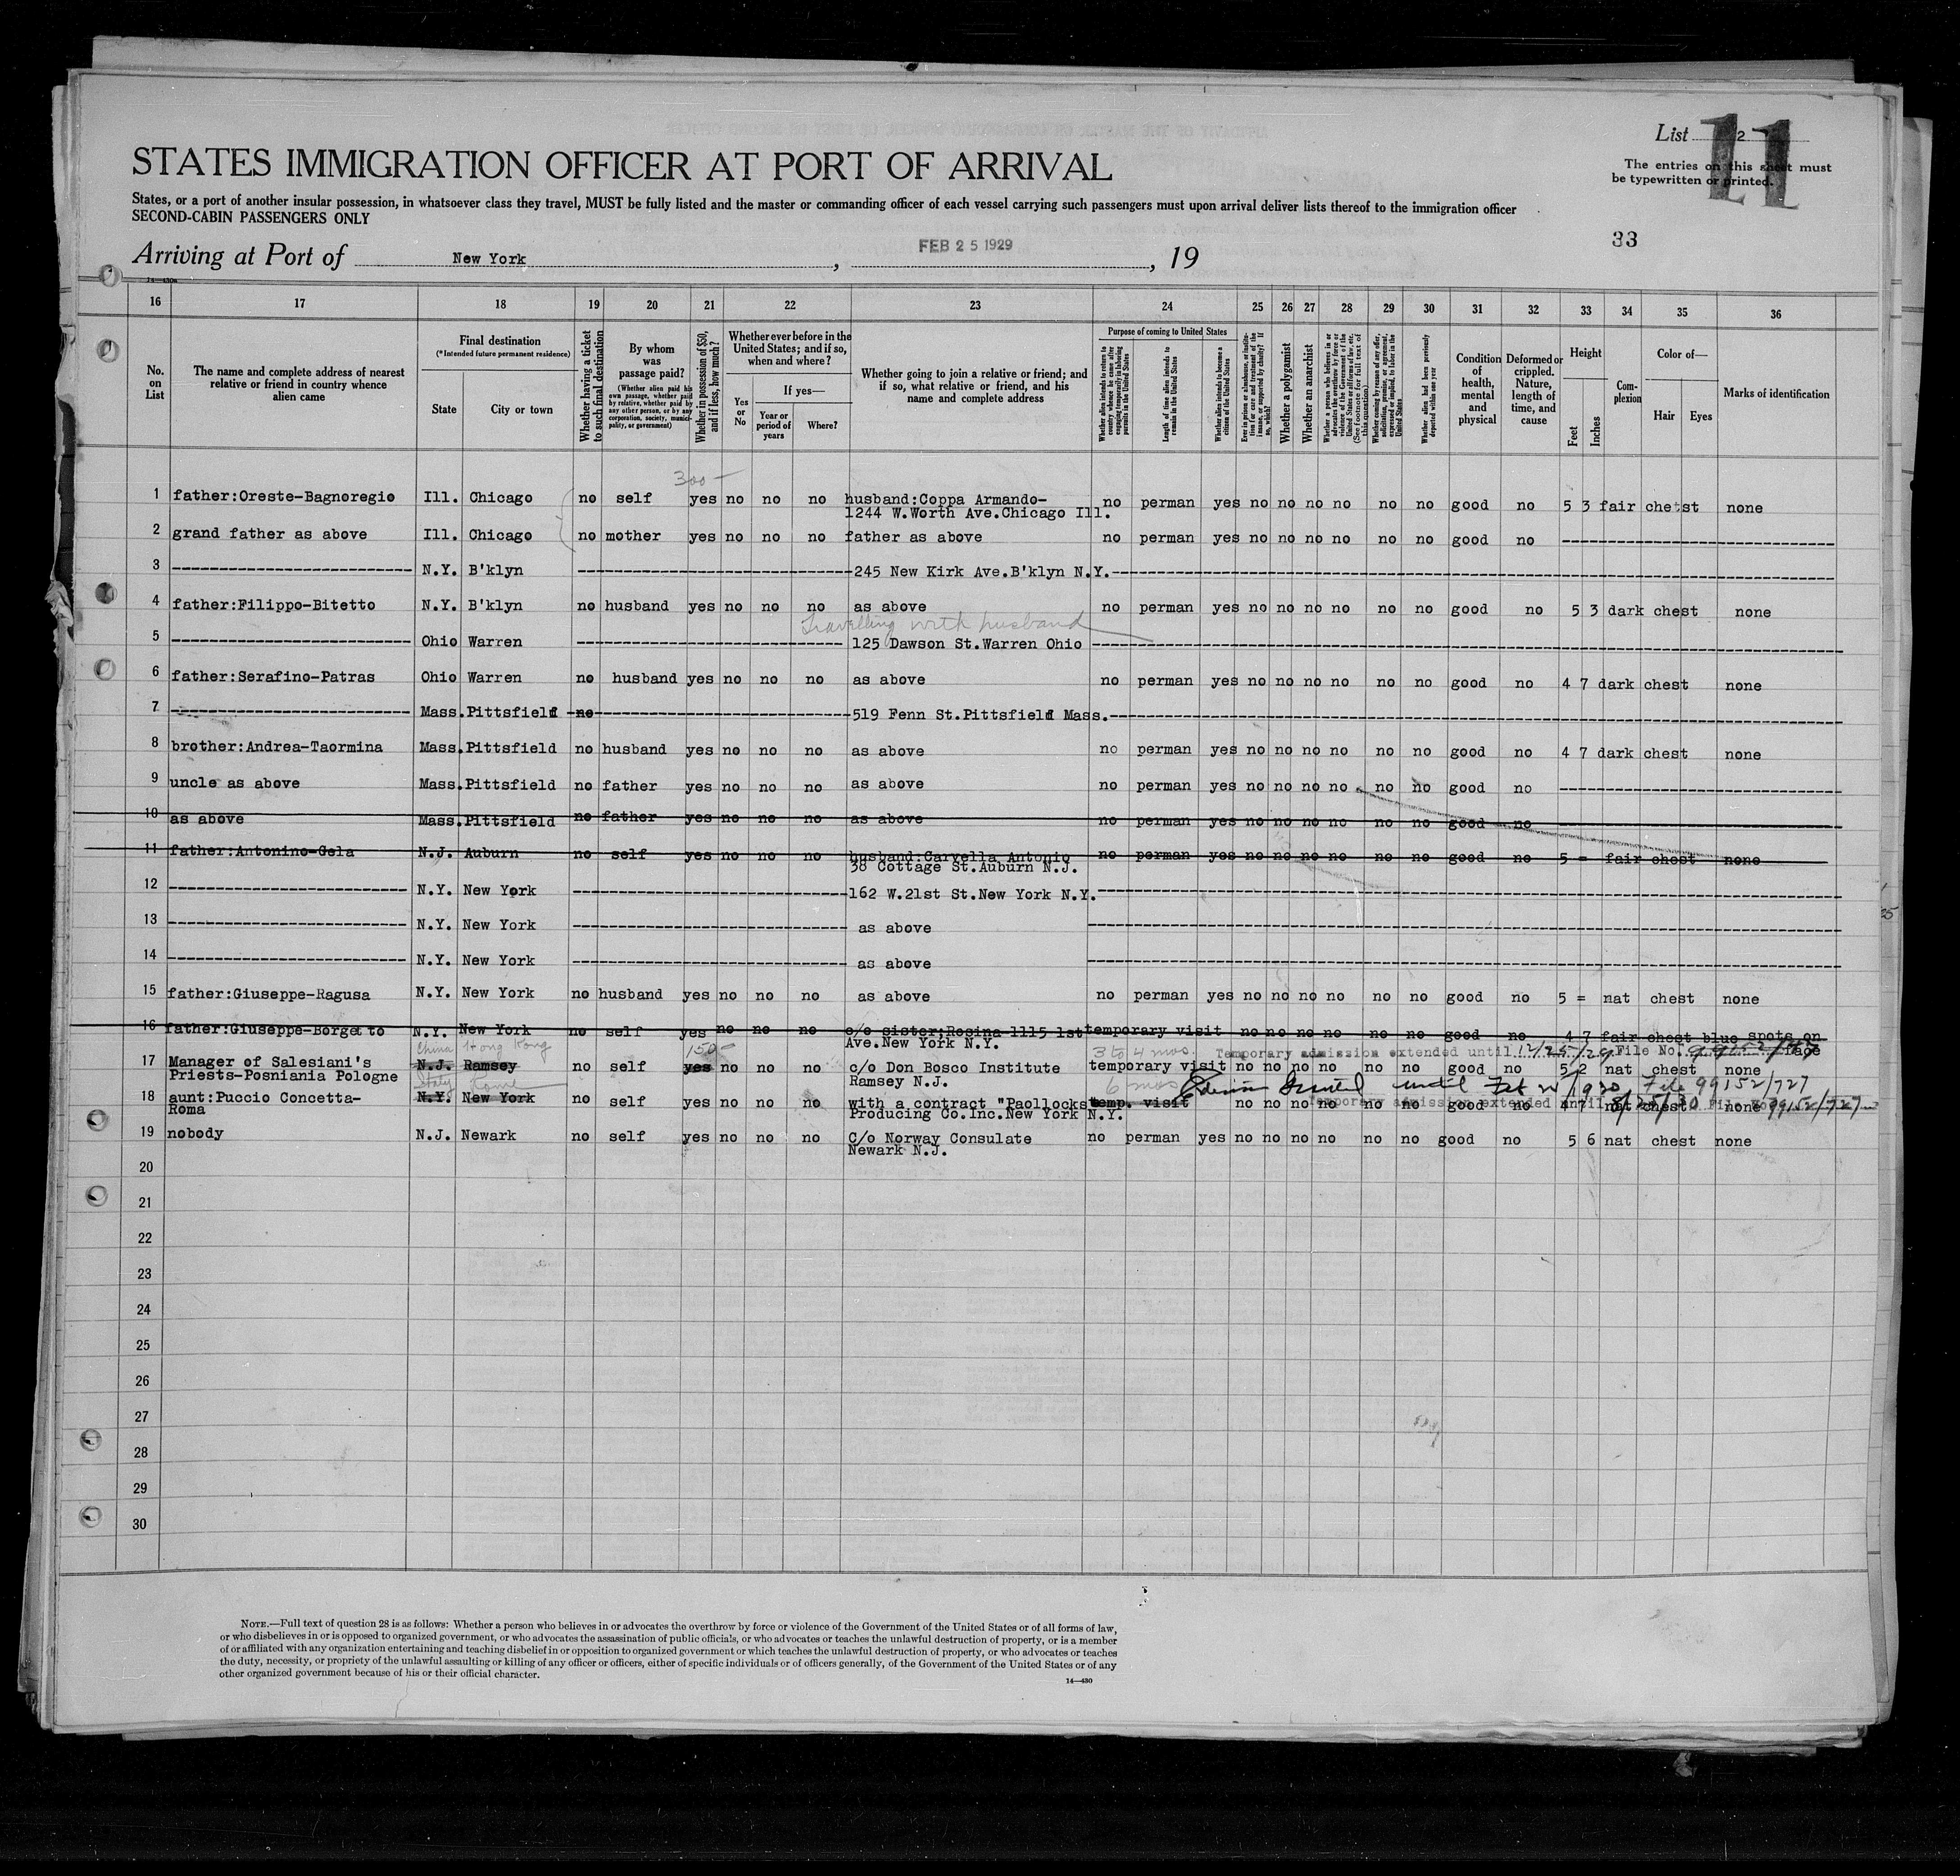 List 2
11
The entries on this sheet must
be typewritten or printed.
STATES IMMIGRATION OFFICER AT PORT OF ARRIVAL
States, or a port of another insular possession, in whatsoever class they travel, MUST be fully listed and the master or commanding officer of each vessel carrying such passengers must upon arrival deliver lists thereof to the immigration officer
SECOND-CABIN PASSENGERS ONLY
33
Arriving at Port of New York, FEB 25 1929, 19
16 17 18 19 20 21 22 23 24 25 26 27 28 29 30 31 32 33 34 35 36
No. on List
The name and complete address of nearest relative or friend in country whence alien came
Final destination
(*Intended future permanent residence)
State
City or town
Whether having a ticket to such final destination
By whom was passage paid?
(Whether alien paid his own passage, whether paid by relative, whether paid by any other person, or by any corporation, society, municipality, or government)
Whether in possession of $50, and if less, how much?
Whether ever before in the United States; and if so, when and where?
Yes or No
If yes—
Year or period of years
Where?
Whether going to join a relative or friend; and if so, what relative or friend, and his name and complete address
Purpose of coming to United States
Length of time alien intends to remain in the United States
Whether alien intends to become a citizen of the United States
Whether a polygamist
Whether an anarchist
Whether alien had been previously deported within one year
Condition of health, mental and physical
Deformed or crippled. Nature, length of time, and cause
Height
Feet
Inches
Complexion
Color of—
Hair
Eyes
Marks of identification
300-
1 father:Oreste-Bagnoregio Ill. Chicago no self yes no no no husband:Coppa Armando- no perman yes no no no no no no good no 5 3 fair chetst none
1244 W.Worth Ave.Chicago Ill.
2 grand father as above Ill. Chicago no mother yes no no no father as above no perman yes no no no no no no good no
3 N.Y. B'klyn 245 New Kirk Ave.B'klyn N.Y.
4 father:Filippo-Bitetto N.Y. B'klyn no husband yes no no no as above no perman yes no no no no no no good no 5 3 dark chest none
Travelling with husband
5 Ohio Warren 125 Dawson St.Warren Ohio
6 father:Serafino-Patras Ohio Warren no husband yes no no no as above no perman yes no no no no no no good no 4 7 dark chest none
7 Mass. Pittsfield no 519 Fenn St.Pittsfield Mass.
8 brother:Andrea-Taormina Mass. Pittsfield no husband yes no no no as above no perman yes no no no no no no good no 4 7 dark chest none
9 uncle as above Mass. Pittsfield no father yes no no no as above no perman yes no no no no no no good no
10 as above Mass. Pittsfield no father yes no no no as above no perman yes no no no no no no good no
11 father:Antonino-Gela N.J. Auburn no self yes no no no husband:Carvella Antonio no perman yes no no no no no no good no 5 = fair chest none
38 Cottage St.Auburn N.J.
12 N.Y. New York 162 W.21st St.New York N.Y.
13 N.Y. New York as above
14 N.Y. New York as above
15 father:Giuseppe-Ragusa N.Y. New York no husband yes no no no as above no perman yes no no no no no no good no 5 = nat chest none
16 father:Giuseppe-Borgetto N.Y. New York no self yes no no no c/o sister:Rosina 1115 1st temporary visit no no no no no no good no 4 7 fair chest blue spots on
Ave.New York N.Y. face
China Hong Kong 150- 3 to 4 mos. Temporary admission extended until 12/25/29 File No.
17 Manager of Salesiani's N.J. Ramsey no self yes no no no c/o Don Bosco Institute temporary visit no no no no no no good no 5 2 nat chest none
Priests-Posniania Pologne Ramsey N.J.
Italy Rome 6 mos until Feb 1930 File 99152/727
18 aunt:Puccio Concetta- N.Y. New York no self yes no no no with a contract "Paollocks temp. visit no no no no no no good no 4 7 nat chest none
Roma Producing Co.Inc.New York N.Y.
Temporary admission extended until 8/25/30 File 99152/727
19 nobody N.J. Newark no self yes no no no C/o Norway Consulate no perman yes no no no no no no good no 5 6 nat chest none
Newark N.J.
20
21
22
23
24
25
26
27
28
29
30
NOTE.—Full text of question 28 is as follows: Whether a person who believes in or advocates the overthrow by force or violence of the Government of the United States or of all forms of law,
or who disbelieves in or is opposed to organized government, or who advocates the assassination of public officials, or who advocates or teaches the unlawful destruction of property, or is a member
of or affiliated with any organization entertaining and teaching disbelief in or opposition to organized government or which teaches the unlawful destruction of property, or who advocates or teaches
the duty, necessity, or propriety of the unlawful assaulting or killing of any officer or officers, either of specific individuals or of officers generally, of the Government of the United States or of any
other organized government because of his or their official character.
14—430